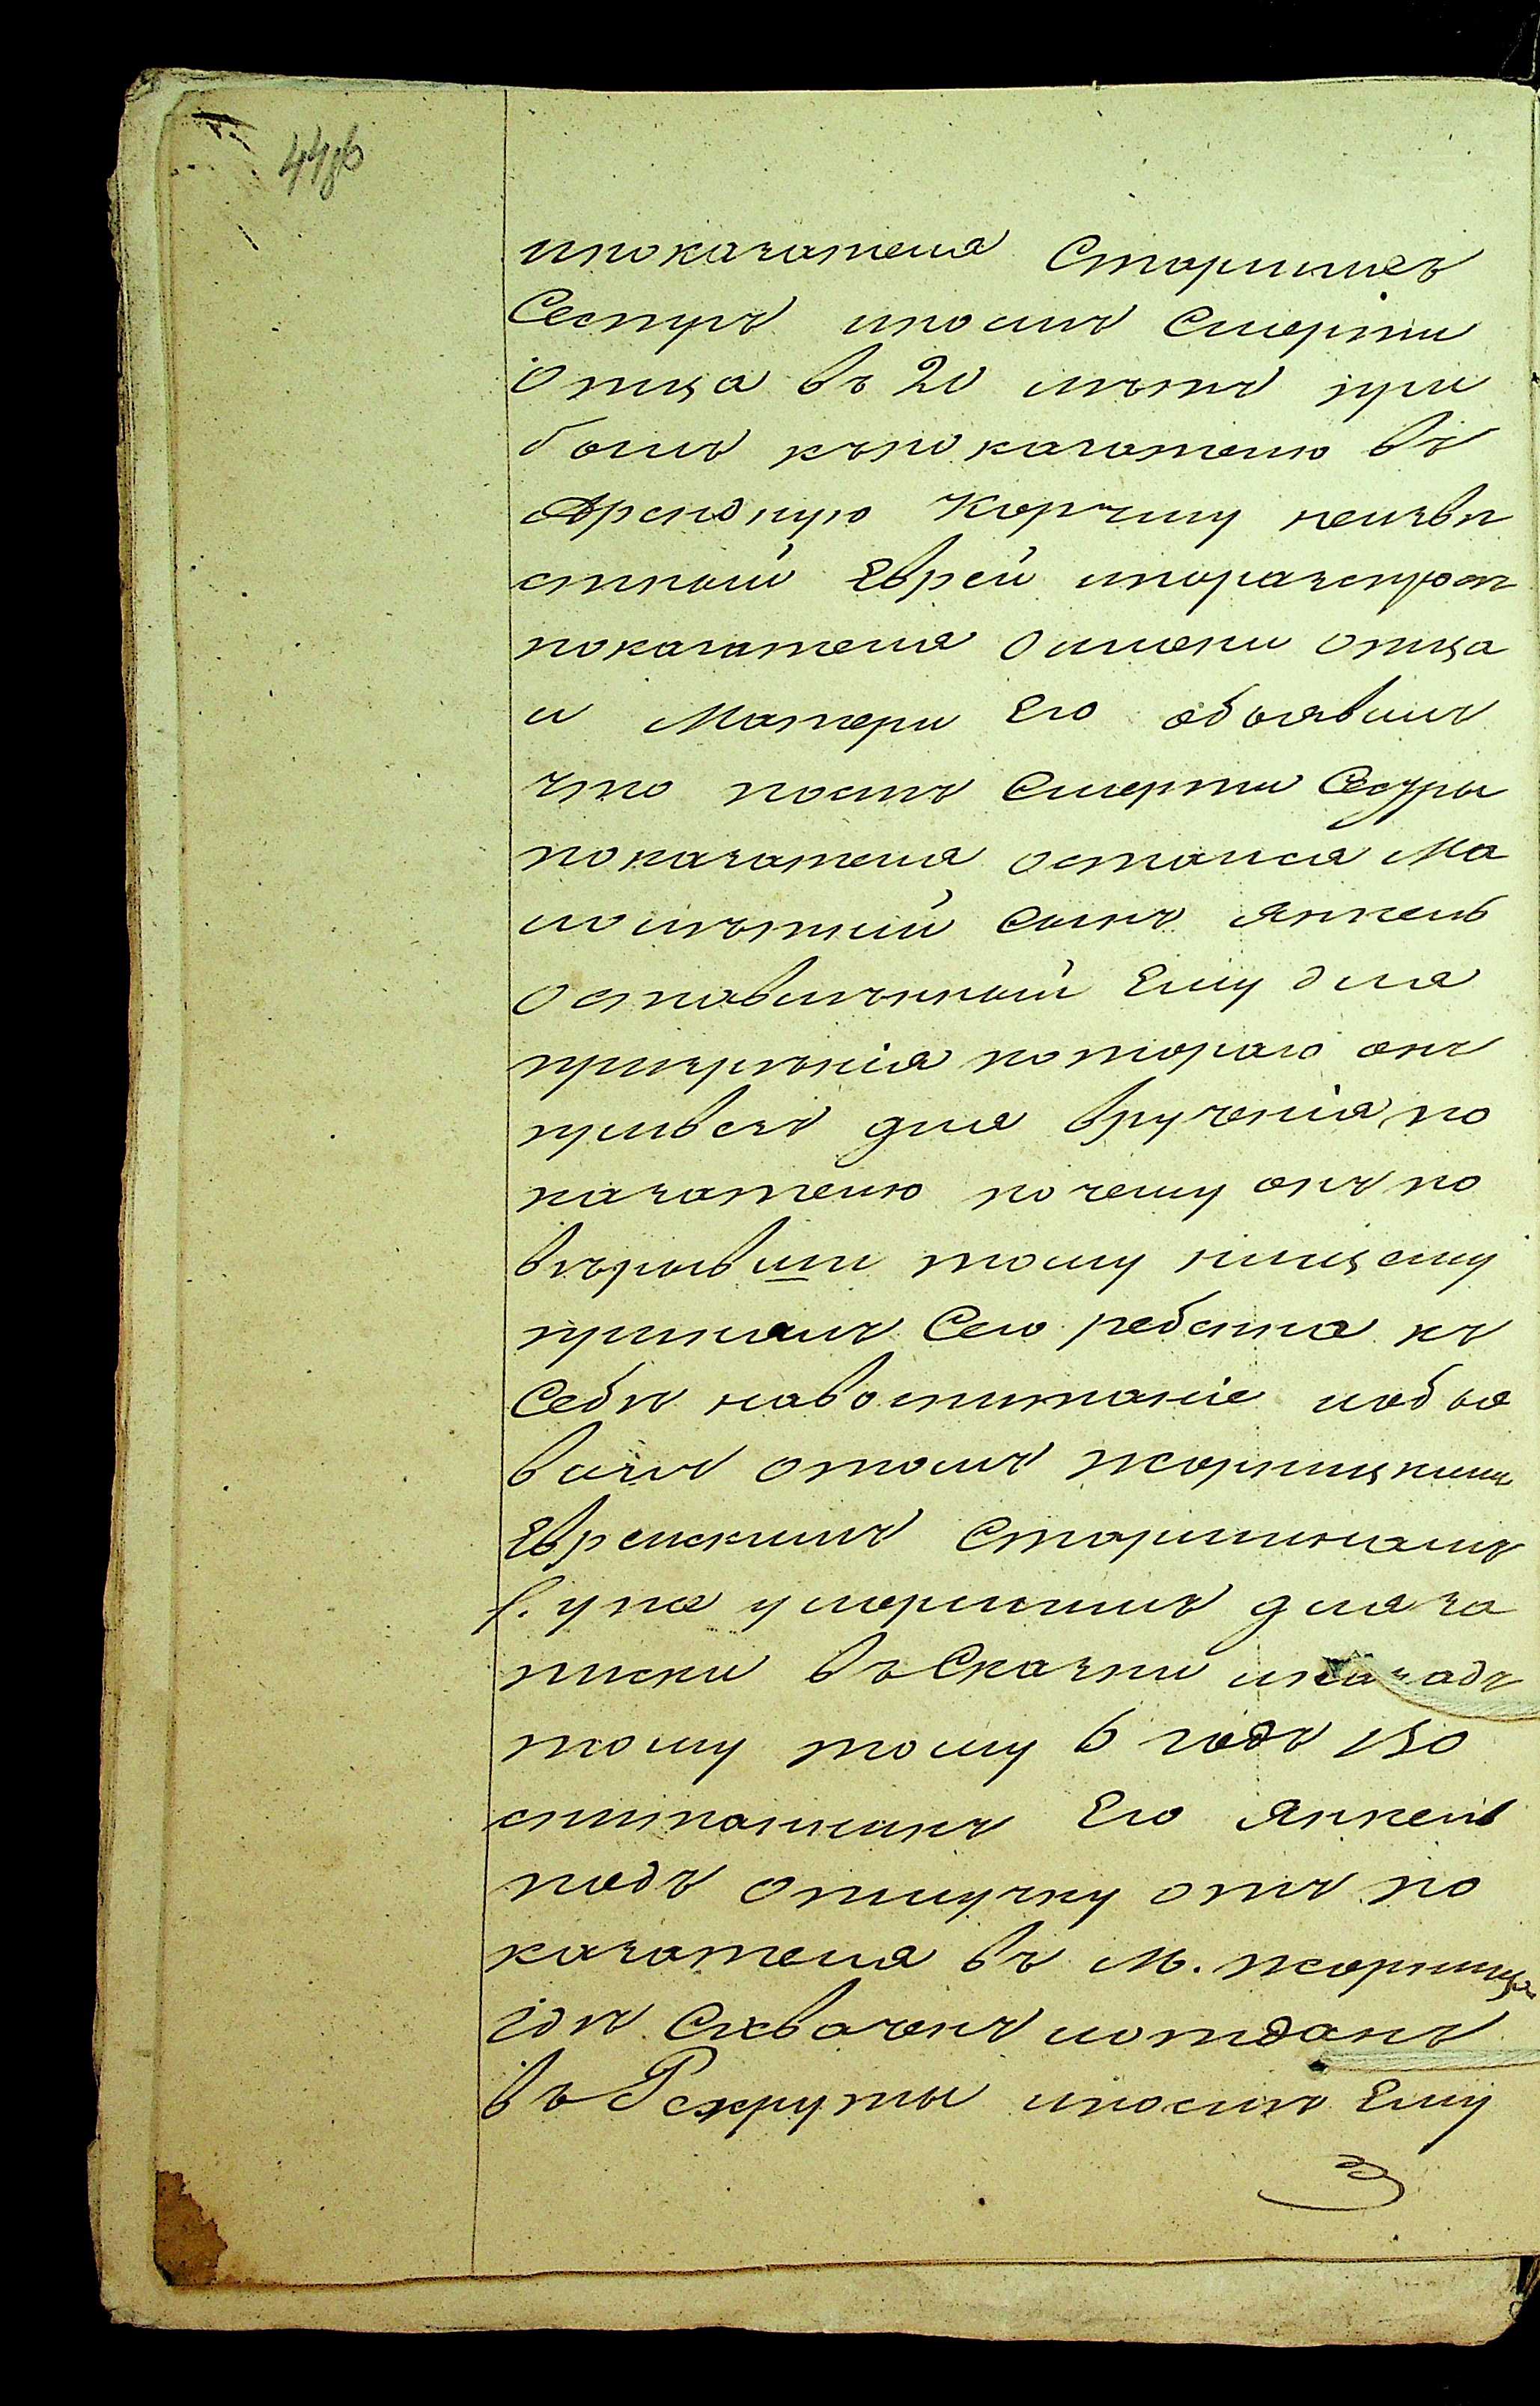 44об
ипоказателя Старшихъ
Сестръ ипослѣ Смерти
Отца въ 20 лѣтъ при
былъ къпоказателю въ
Арендную Корчму неизвѣ
стный Еврей ипоразспросѣ
показателя о имени отца
и Матери Его объявилъ
что послѣ Смерти Сестры
показателя остался Ма
лолѣтній Сынъ Янкель
Оставлѣнный Ему для
призрѣнія котораго онъ
привезъ для врученія по
казателю почему онъ по
вѣрывши тому нищему
принялъ Сего ребенка къ
Себѣ навоспитаніе иобъя
вилъ отомъ жорнищкимъ
Еврейскимъ Старшинамъ
уже умершимъ для за
писки въ Сказки иназадъ
тому тому 6 годъ во
спитанникъ Его Янкель
подъ отлучку отъ по
казателя въ М. жорнищѣ
гдѣ Схваченъ иотданъ
въ Рекруты ипосию Ему